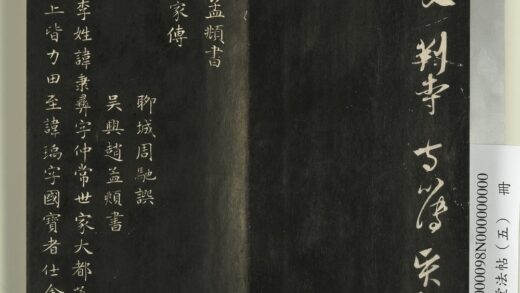 冊
法帖（五）
000098N000000000
孟頫書
家傳
聊城周馳譔
吳興趙孟頫書
李姓諱秉彝字仲常世家大都
上皆力田至諱瑀字國寶者仕金